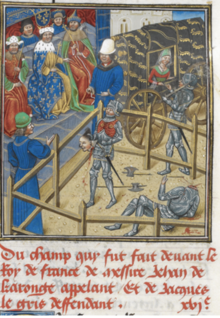 Du champ quy fut fait deuant le
Roy de france de messire Jehan de
Karonge appelant Et de Jacques
le gris deffendant . xvj.